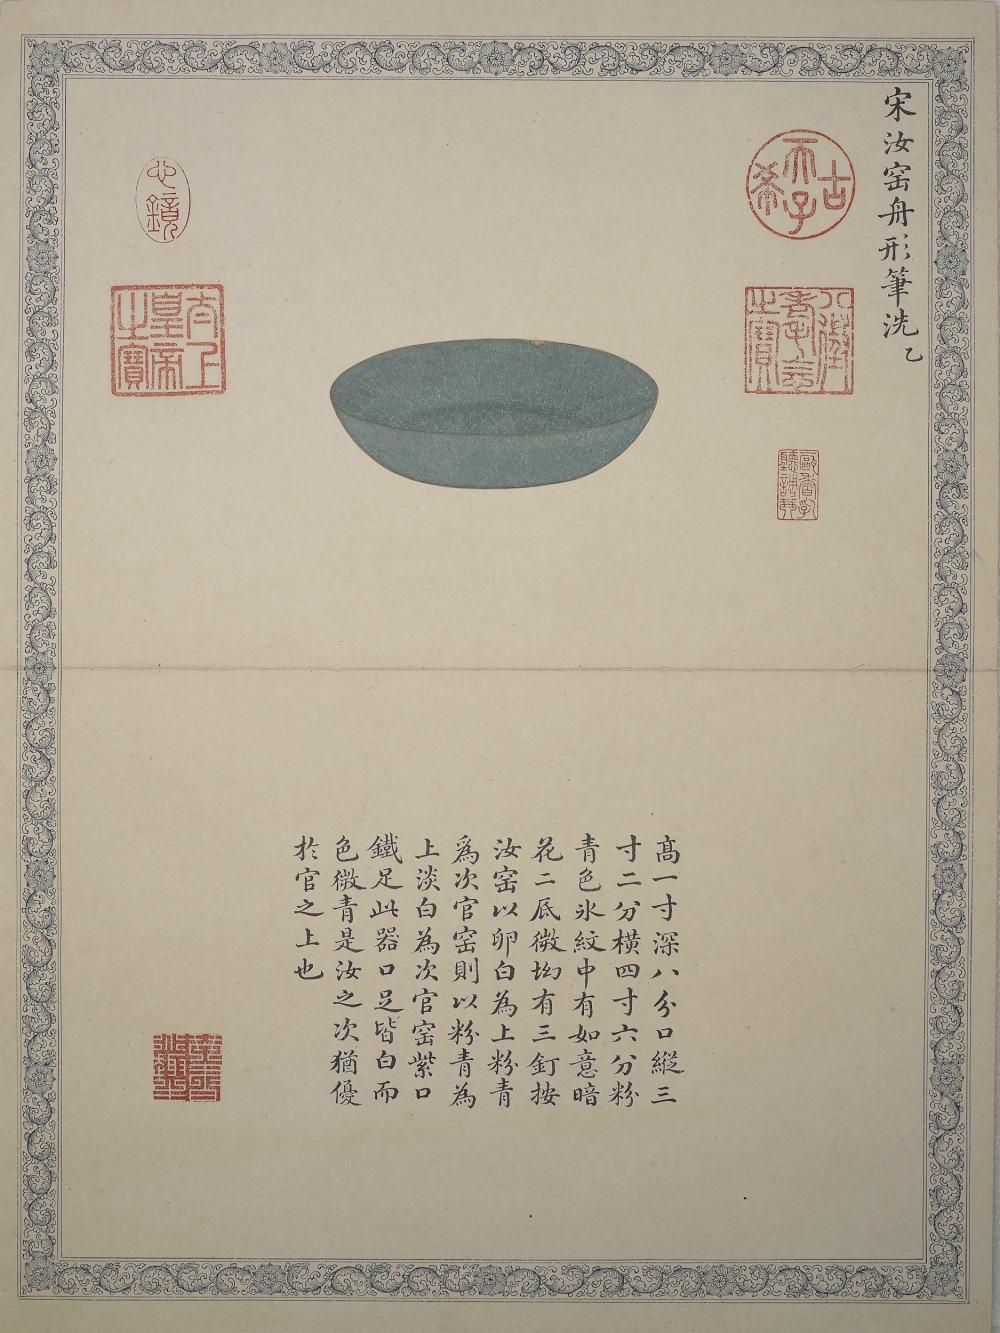 宋汝窑舟形筆洗乙
古
天子
希
八徵
耄念
之寶
心鏡
太上
皇帝
之寶
高一寸深八分口縱三
寸二分橫四寸六分粉
青色氷紋中有如意暗
花二底微坳有三釘按
汝窑以卵白為上粉青
為次官窑則以粉青為
上淡白為次官窑紫口
鐵足此器口足皆白而
色微青是汝之次猶優
於官之上也